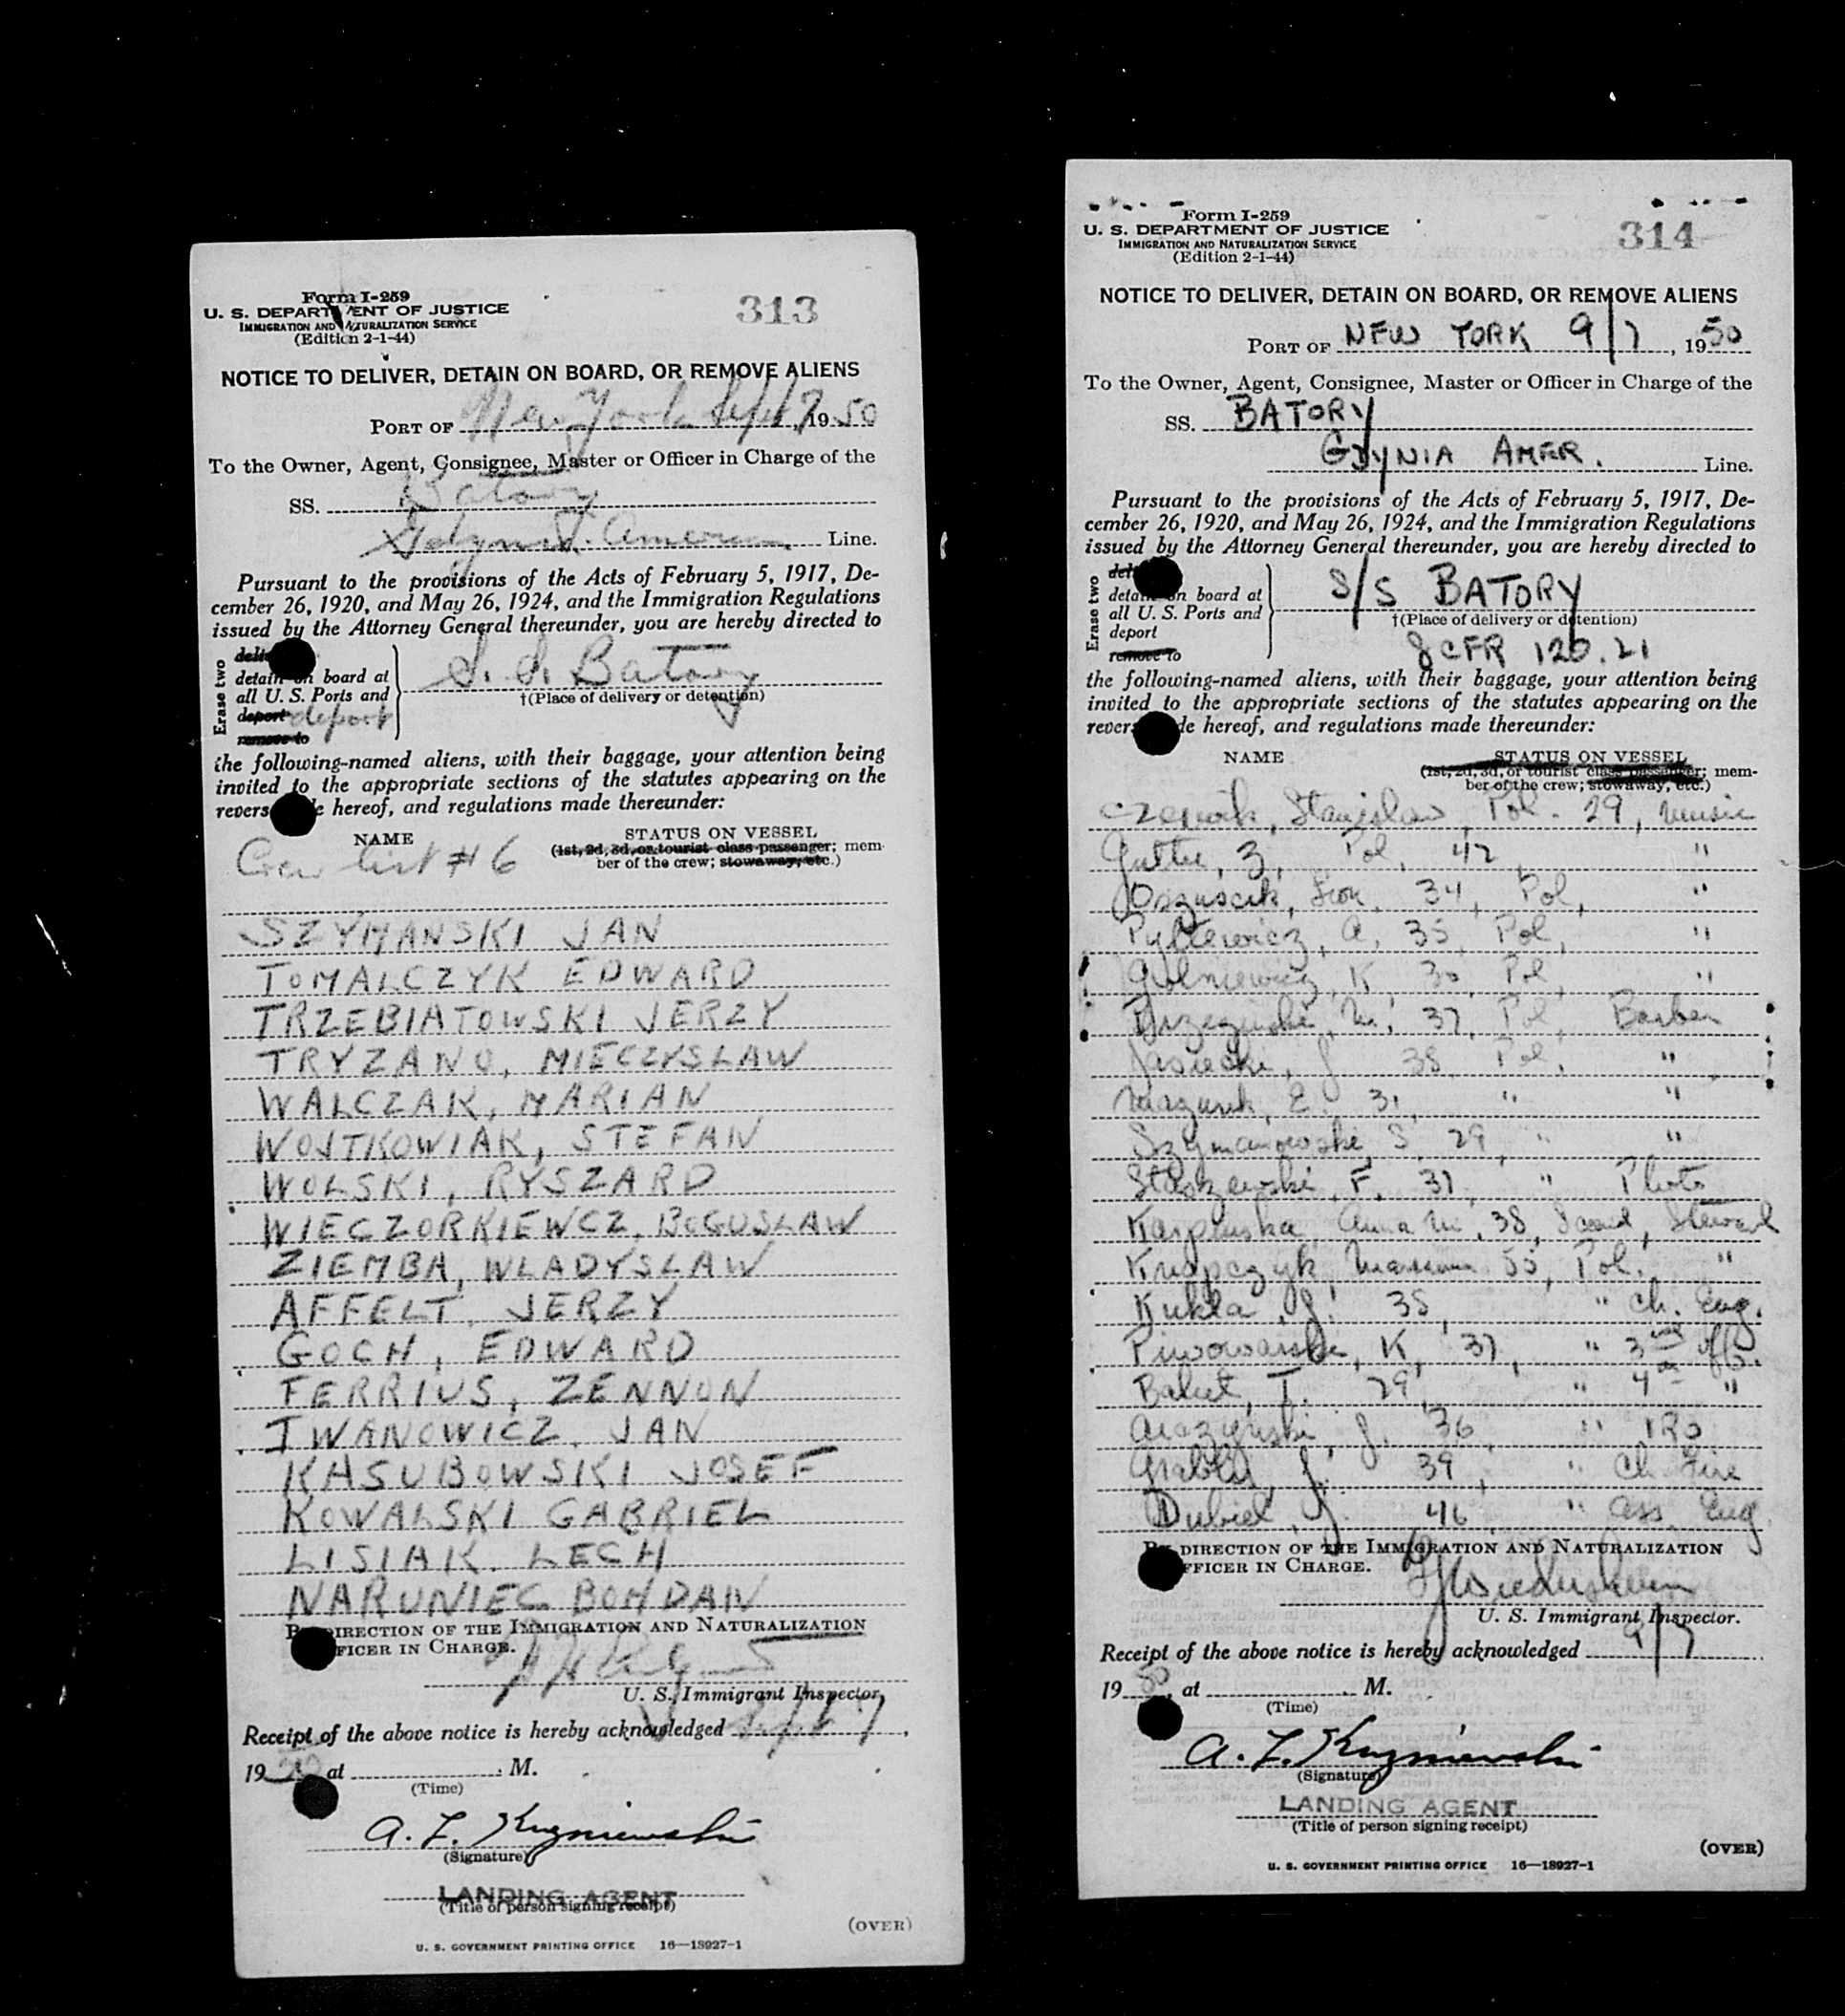 Form I-259
U. S. DEPARTMENT OF JUSTICE
IMMIGRATION AND NATURALIZATION SERVICE
(Edition 2-1-44)
313
NOTICE TO DELIVER, DETAIN ON BOARD, OR REMOVE ALIENS
PORT OF New York Sept 7, 1950
To the Owner, Agent, Consignee, Master or Officer in Charge of the
SS. Batory
Gdynia America Line.
Pursuant to the provisions of the Acts of February 5, 1917, De-
cember 26, 1920, and May 26, 1924, and the Immigration Regulations
issued by the Attorney General thereunder, you are hereby directed to
Erase two
detain on board at
all U. S. Ports and
deport deport
remove to
S. S. Batory
†(Place of delivery or detention)
the following-named aliens, with their baggage, your attention being
invited to the appropriate sections of the statutes appearing on the
hereof, and regulations made thereunder:
NAME STATUS ON VESSEL
(1st, 2d, 3d, or tourist class passenger; mem-
ber of the crew; stowaway, etc.)
Crew list # 6
SZYMANSKI JAN
TOMALCZYK EDWARD
TRZEBIATOWSKI JERZY
TRYZANO, MIECZYSLAW
WALCZAK, MARIAN
WOJTKOWIAK, STEFAN
WOLSKI, RYSZARD
WIECZORKIEWCZ, BOGUSLAW
ZIEMBA, WLADYSLAW
AFFELT, JERZY
GOCH, EDWARD
FERRIUS, ZENNON
IWANOWICZ, JAN
KASUBOWSKI JOSEF
KOWALSKI GABRIEL
LISIAK. LECH
NARUNIEC BOHDAN
DIRECTION OF THE IMMIGRATION AND NATURALIZATION
OFFICER IN CHARGE.
U. S. Immigrant Inspector.
Receipt of the above notice is hereby acknowledged Sept 7,
1950 at M.
(Time)
A. Z. Kuzniewski
(Signature)
LANDING AGENT
(Title of person signing receipt)
(OVER)
U. S. GOVERNMENT PRINTING OFFICE 16—18927-1
Form I-259
U. S. DEPARTMENT OF JUSTICE
IMMIGRATION AND NATURALIZATION SERVICE
(Edition 2-1-44)
314
NOTICE TO DELIVER, DETAIN ON BOARD, OR REMOVE ALIENS
PORT OF NEW YORK 9/7, 1950
To the Owner, Agent, Consignee, Master or Officer in Charge of the
SS. BATORY
GDYNIA AMER. Line.
Pursuant to the provisions of the Acts of February 5, 1917, De-
cember 26, 1920, and May 26, 1924, and the Immigration Regulations
issued by the Attorney General thereunder, you are hereby directed to
Erase two
detain on board at
all U. S. Ports and
deport
remove to
S/S BATORY
†(Place of delivery or detention)
8 CFR 120.21
the following-named aliens, with their baggage, your attention being
invited to the appropriate sections of the statutes appearing on the
hereof, and regulations made thereunder:
NAME STATUS ON VESSEL
(1st, 2d, 3d, or tourist class passenger; mem-
ber of the crew; stowaway, etc.)
Stanislaw, Pol. 29, Music
Z, Pol, 42, "
34, Pol, "
A, 35, Pol, "
K 30, Pol, "
Brzezinski, M, 37, Pol, Barber
Jasiecki, J 38 Pol, "
Mazurek, E. 31, " "
Szymanowski, S, 29, " "
Staszewski, F. 37, " Photo
Karpinska, Anna M, 38, Steward
Krupczyk, 55, Pol. "
Kukla, J. 38, " Ch. Eng.
Piwowarski, K, 37, " 3rd Off.
T. 29, " 4th "
J. 36, "
J. 39, " Ch. Fire
Dubiel, J. 46, " Ass. Eng.
DIRECTION OF THE IMMIGRATION AND NATURALIZATION
OFFICER IN CHARGE.
U. S. Immigrant Inspector.
Receipt of the above notice is hereby acknowledged 9/7
1950, at M.
(Time)
A. Z. Kuzniewski
(Signature)
LANDING AGENT
(Title of person signing receipt)
(OVER)
U. S. GOVERNMENT PRINTING OFFICE 16—18927-1